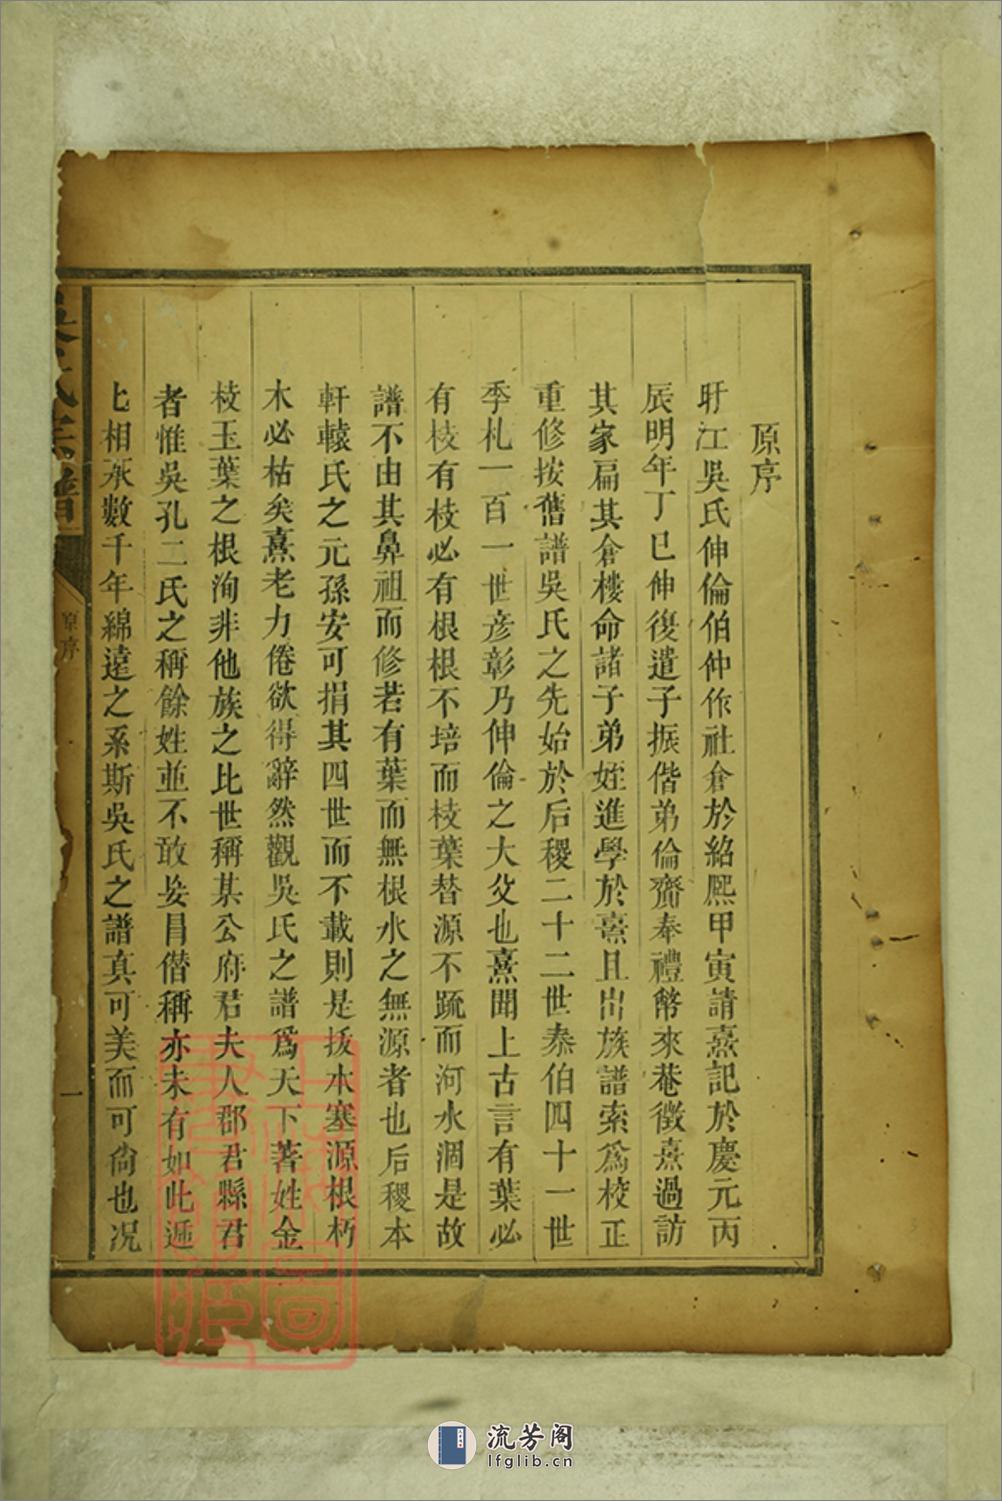 原序
盱江吳氏伸倫伯仲作社倉於紹熙甲寅請熹記於慶元丙
辰明年丁巳伸復遣子振偕弟倫齎奉禮幣來菴徵熹過訪
其家扁其倉樓命諸子弟姪進學於熹且出族譜索爲校正
重修按舊譜吳氏之先始於后稷二十二世泰伯四十一世
季札一百一世彥彰乃伸倫之大父也熹聞上古言有葉必
有枝有枝必有根根不培而枝葉替源不䟽而河水涸是故
譜不由其鼻祖而修若有葉而無根水之無源者也后稷本
軒轅氏之元孫安可捐其四世而不載則是拔本塞源根朽
木必枯矣熹老力倦欲得辭然觀吳氏之譜爲天下著姓金
枝玉葉之根洵非他族之比世稱某公府君夫人郡君縣君
者惟吳孔二氏之稱餘姓並不敢妄冐僣稱亦未有如此遞
七相承數千年綿遠之系斯吳氏之譜真可美而可尙也况
原序
一
流芳阁
lfglib.cn